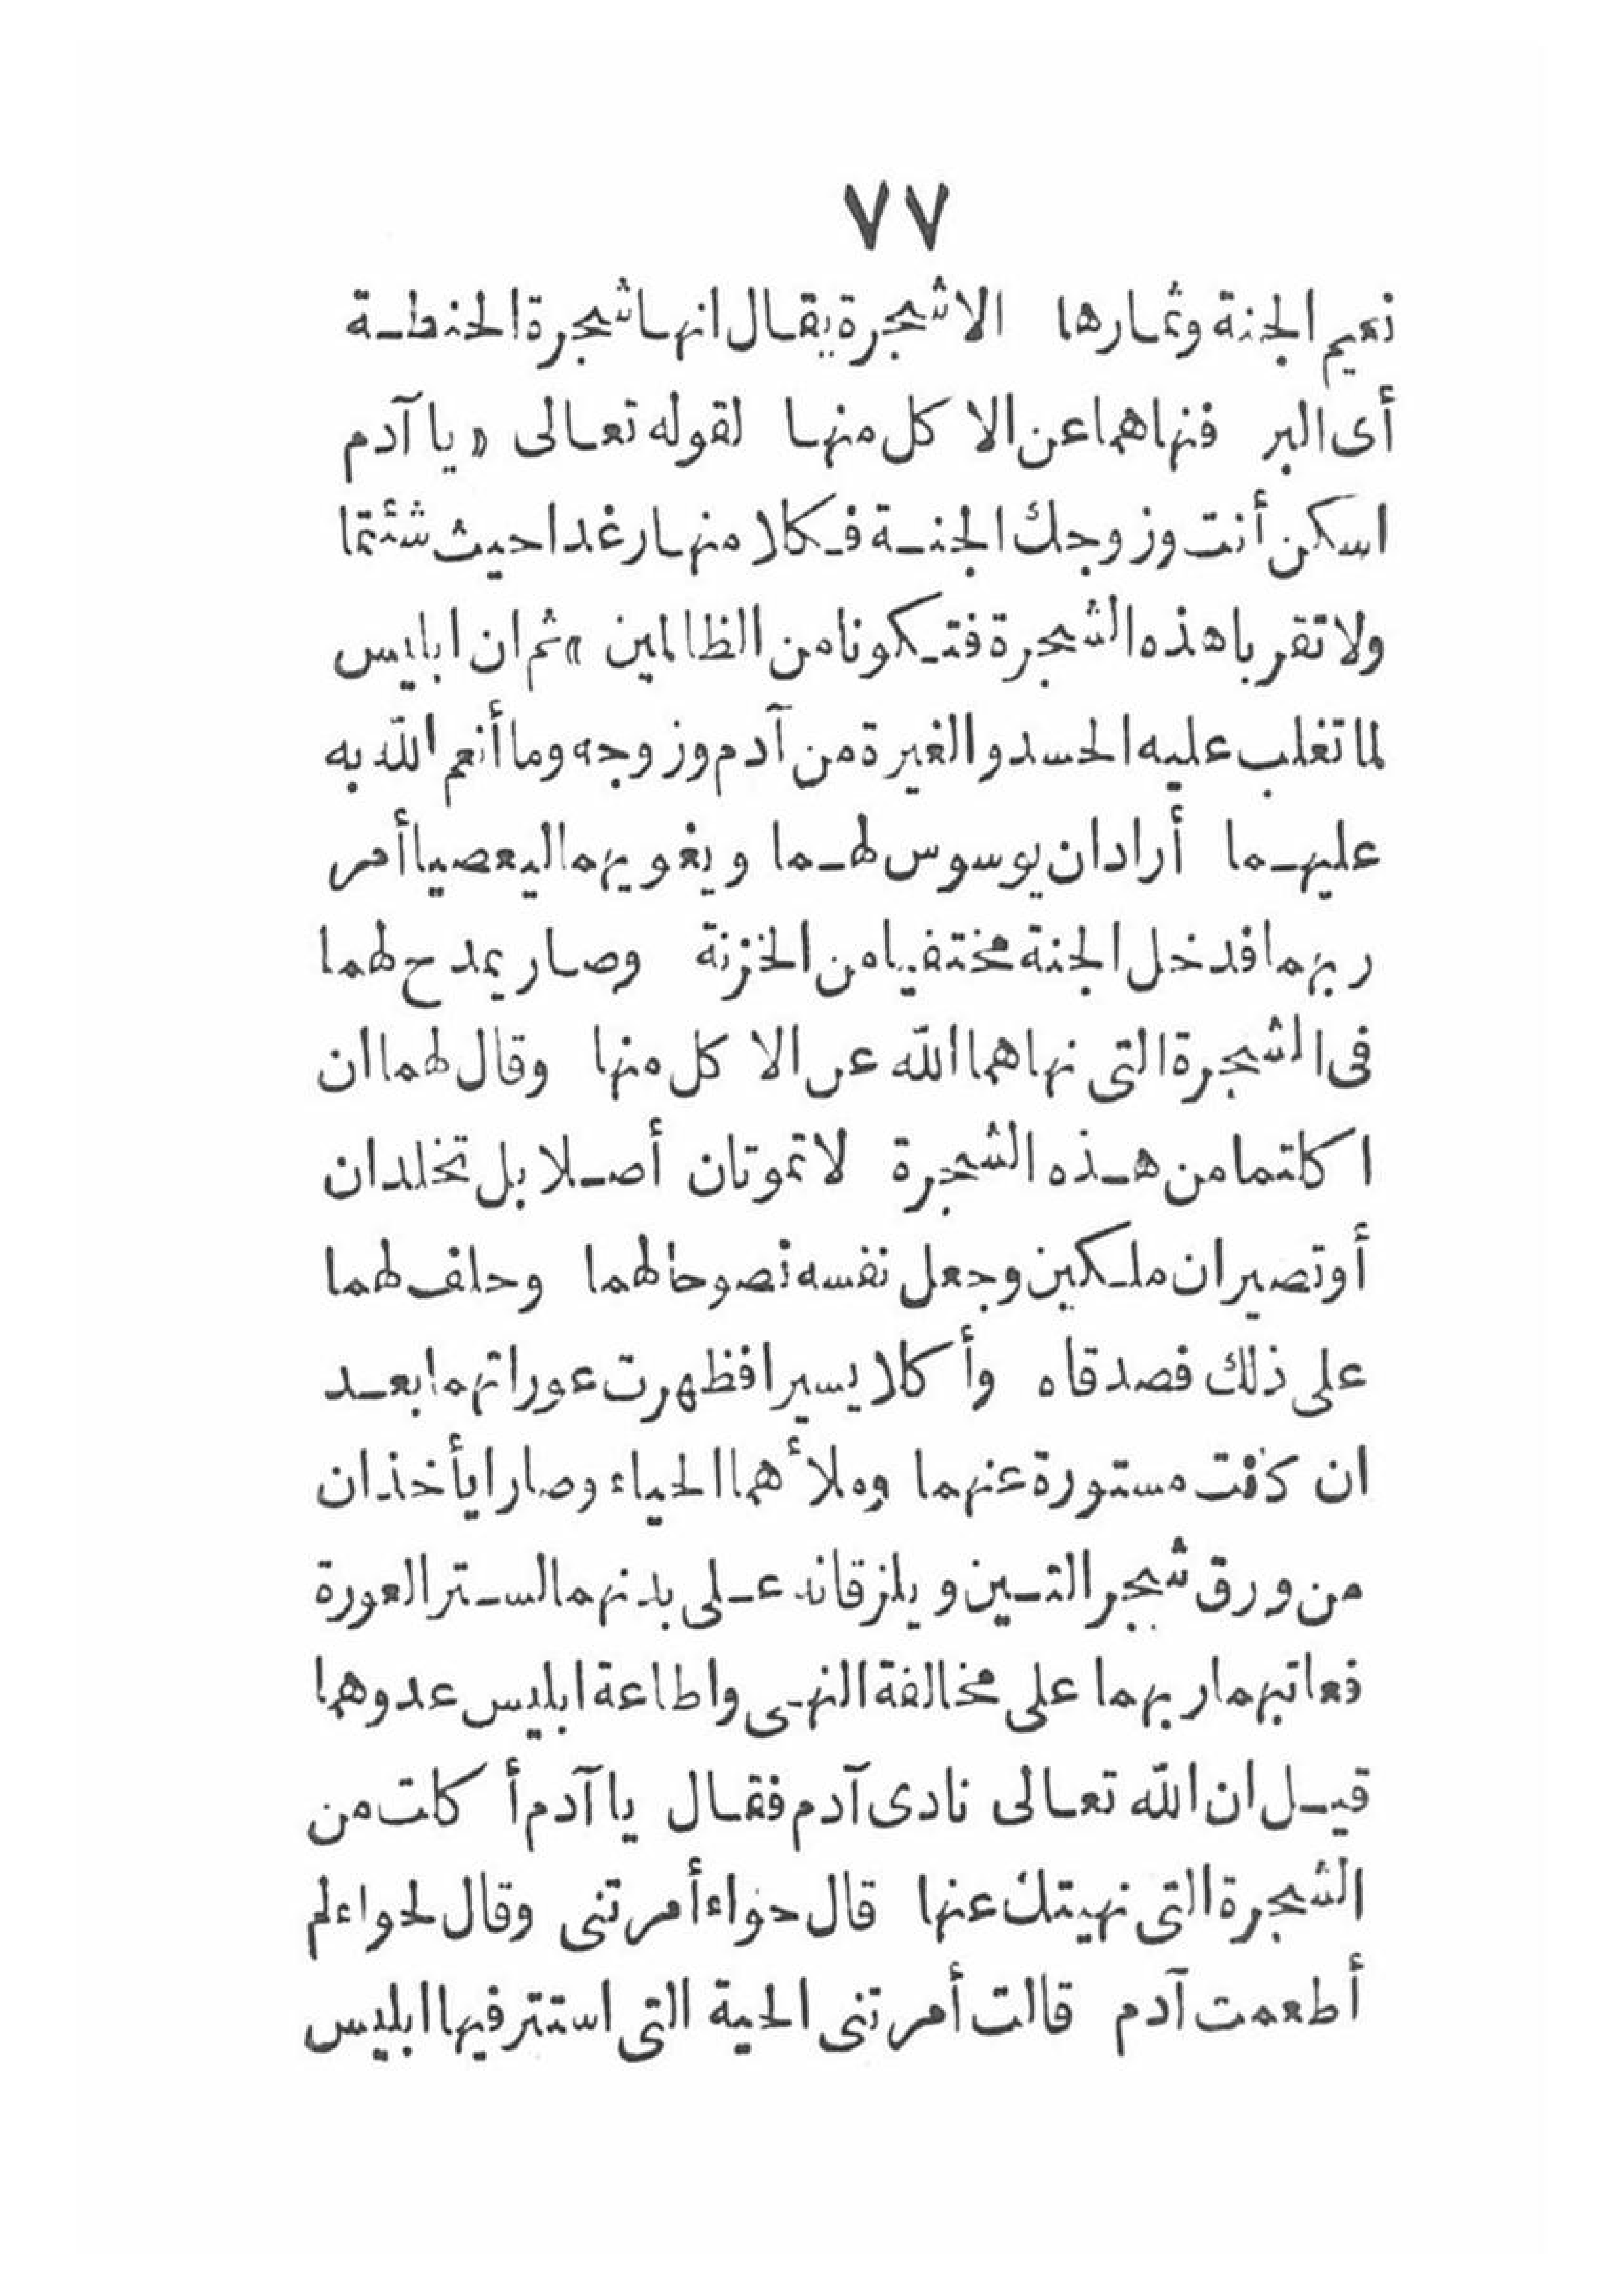 ٧٧
نعيم الجنة وثمارها الا شجرة يقال انها شجرة الحنطة
أى البر فنهاهما عن الاكل منها لقوله تعالى « يا آدم
اسكن أنت وزوجك الجنة فكلا منها رغدا حيث شئتما
ولا تقربا هذه الشجرة فتكونا من الظالمين » ثم ان ابليس
لما تغلب عليه الحسد والغيرة من آدم وزوجه وما أنعم الله به
عليهما أراد ان يوسوس لهما ويغويهما ليعصيا أمر
ربهما فدخل الجنة مختفيا من الخزنة وصار يمدح لهما
فى الشجرة التى نهاهما الله عن الاكل منها وقال لهما ان
اكلتما من هذه الشجرة لا تموتان أصلا بل تخلدان
أو تصيران ملكين وجعل نفسه نصوحا لهما وحلف لهما
على ذلك فصدقاه وأكلا يسيرا فظهرت عوراتهما بعد
ان كانت مستورة عنهما وملأهما الحياء وصارا يأخذان
من ورق شجر التين ويلزقانه على بدنهما لستر العورة
فعاتبهما ربهما على مخالفة النهى واطاعة ابليس عدوهما
قيل ان الله تعالى نادى آدم فقال يا آدم أكلت من
الشجرة التى نهيتك عنها قال حواء أمرتنى وقال لحواء لم
أطعمت آدم قالت أمرتنى الحية التى استتر فيها ابليس